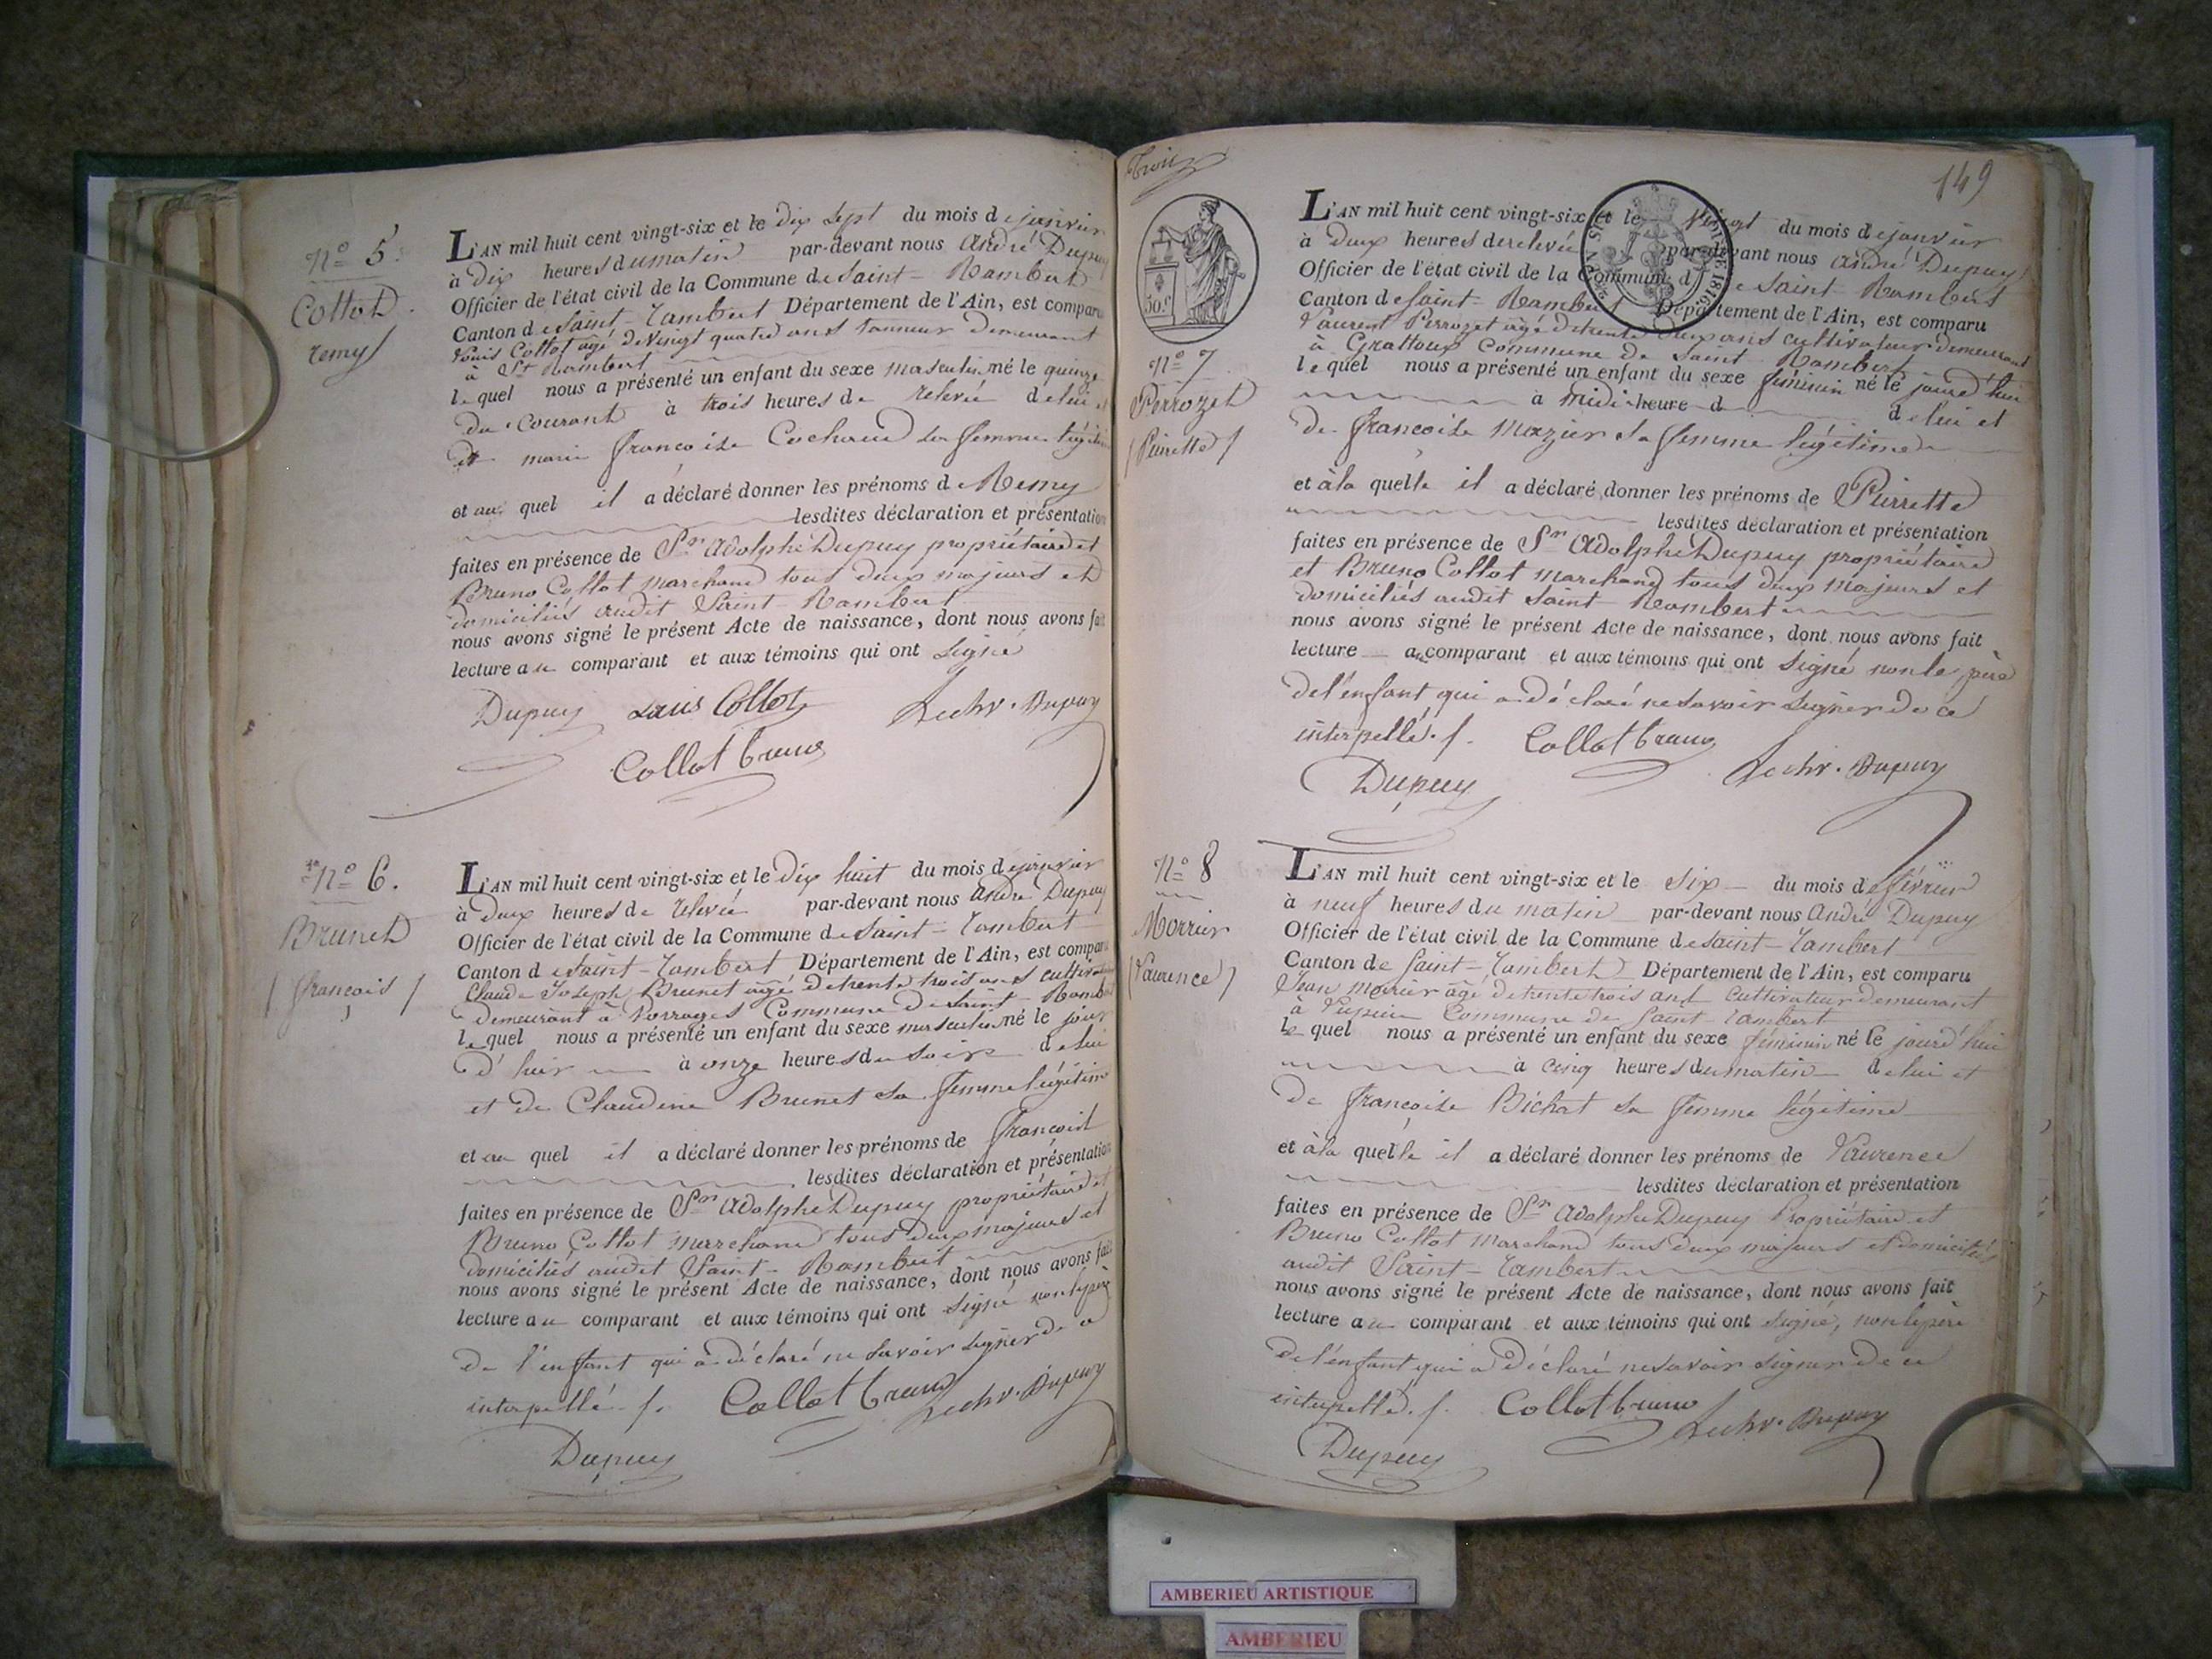 N° 5
Collot
remy
L'AN mil huit cent vingt-six et le dix sept du mois de janvier
à dix heures du matin par-devant nous André Dupuy
Officier de l'état civil de la Commune de Saint-Rambert
Canton de Saint-Rambert Département de l'Ain, est comparu
Louis Collot agé de vingt quatre ans tanneur demeurant
à St Rambert
lequel nous a présenté un enfant du sexe masculin né le quinze
du courant à trois heures de relevée de lui et
et marie françoise Cochaud sa femme légitime
et au quel il a déclaré donner les prénoms d Remy
lesdites déclaration et présentation
faites en présence de Sr Adolphe Dupuy propriétaire et
Bruno Collot marchand tous deux majeurs et
domiciliés audit Saint-Rambert
nous avons signé le présent Acte de naissance, dont nous avons fait
lecture au comparant et aux témoins qui ont signé
Dupuy Louis Collot Dupuy
Collot bruno
N° 6.
Brunet
(françois)
L'AN mil huit cent vingt-six et le dix huit du mois de janvier
à deux heures de relevée par-devant nous André Dupuy
Officier de l'état civil de la Commune de Saint-Rambert
Canton de Saint-Rambert Département de l'Ain, est comparu
Claude Joseph Brunet âgé de trente trois ans cultivateur
demeurant à Commune de Saint-Rambert
lequel nous a présenté un enfant du sexe masculin né le jour
d'hier à onze heures du soir de lui
et de Claudine Brunet sa femme légitime
et au quel il a déclaré donner les prénoms de françois
lesdites déclaration et présentation
faites en présence de Sr Adolphe Dupuy propriétaire et
Bruno Collot marchand tous deux majeurs et
domiciliés audit Saint-Rambert
nous avons signé le présent Acte de naissance, dont nous avons fait
lecture au comparant et aux témoins qui ont signé non le père
de l'enfant qui a déclaré ne savoir signer de ce
interpellé.
Collot bruno Dupuy
Dupuy
Trois
149
30 c
N° 7
Perrozet
(Pierrette)
L'AN mil huit cent vingt-six et le vingt du mois de janvier
à deux heures de relevée par-devant nous André Dupuy
Officier de l'état civil de la Commune de Saint-Rambert
Canton de Saint-Rambert Département de l'Ain, est comparu
Laurent Perrozet agé de trente deux ans cultivateur demeurant
à Grattoux Commune de Saint-Rambert
lequel nous a présenté un enfant du sexe féminin né le jourd'hui
à midi heure d de lui et
de françoise Mazuir sa femme légitime
et à la quelle il a déclaré donner les prénoms de Pierrette
lesdites déclaration et présentation
faites en présence de Sr Adolphe Dupuy propriétaire
et Bruno Collot marchand tous deux majeurs et
domiciliés audit Saint-Rambert
nous avons signé le présent Acte de naissance, dont nous avons fait
lecture au comparant et aux témoins qui ont signé non le père
de l'enfant qui a déclaré ne savoir signer de ce
interpellé. Collot bruno
Dupuy Dupuy
N° 8
Morrier
(Laurence)
L'AN mil huit cent vingt-six et le six du mois de février
à neuf heures du matin par-devant nous André Dupuy
Officier de l'état civil de la Commune de Saint-Rambert
Canton de Saint-Rambert Département de l'Ain, est comparu
Jean Morrier âgé de trente trois ans cultivateur demeurant
à Commune de Saint-Rambert
lequel nous a présenté un enfant du sexe féminin né le jourd'hui
à cinq heures du matin de lui et
de françoise Bichat sa femme légitime
et à la quelle il a déclaré donner les prénoms de Laurence
lesdites déclaration et présentation
faites en présence de Sr Adolphe Dupuy Propriétaire et
Bruno Collot marchand tous deux majeurs et domiciliés
audit Saint-Rambert
nous avons signé le présent Acte de naissance, dont nous avons fait
lecture au comparant et aux témoins qui ont signé, non le père
de l'enfant qui a déclaré ne savoir signer de ce
interpellé. Collot bruno
Dupuy Dupuy
AMBERIEU ARTISTIQUE
AMBERIEU